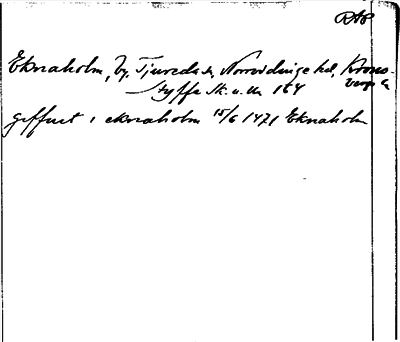 RAP
Eknaholm, by, Tjureda sn, Norrvidinge hd, Krono-
bergs l.
Styffe Sk. u. U. 184
giffuet i eknaholm 15/6 1471 Eknaholm